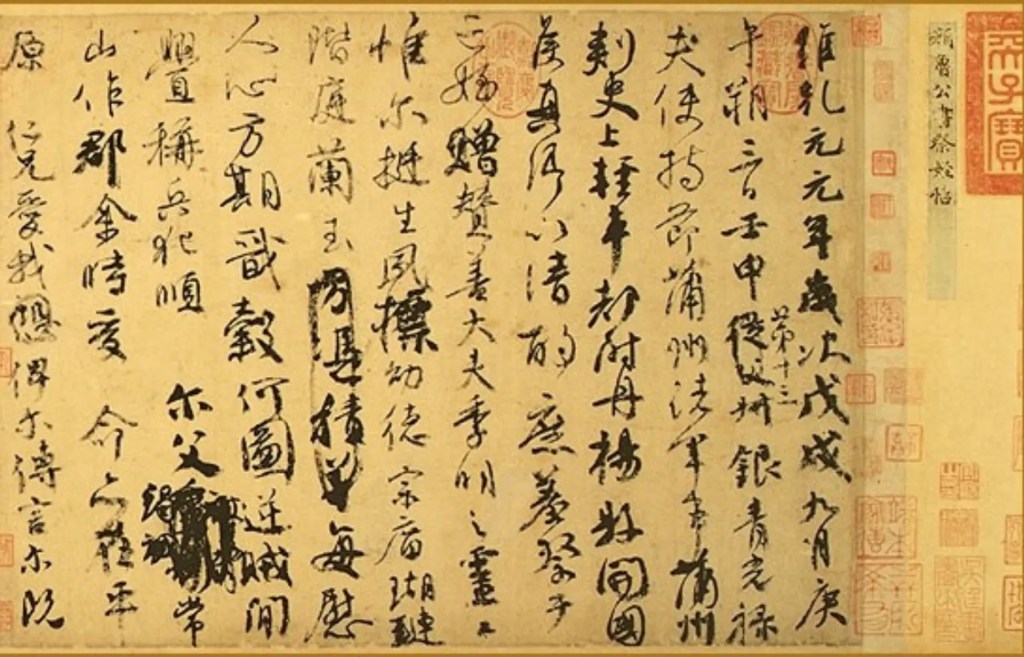 天子寶
顏魯公書祭姪帖
維乾元元年歲次戊戌九月庚
午朔三日壬申第十三從父叔銀青光祿
夫使持節蒲州諸軍事蒲州
刺史上輕車都尉丹楊縣開國
侯真卿以清酌庶羞祭于
亡姪贈贊善大夫季明之靈曰
惟爾挺生夙標幼德宗廟瑚璉
階庭蘭玉方憑積善每慰
人心方期戩穀何圖逆賊間
釁稱兵犯順 爾父竭誠常
山作郡余時受 命亦在平
原仁兄愛我俾爾傳言爾既